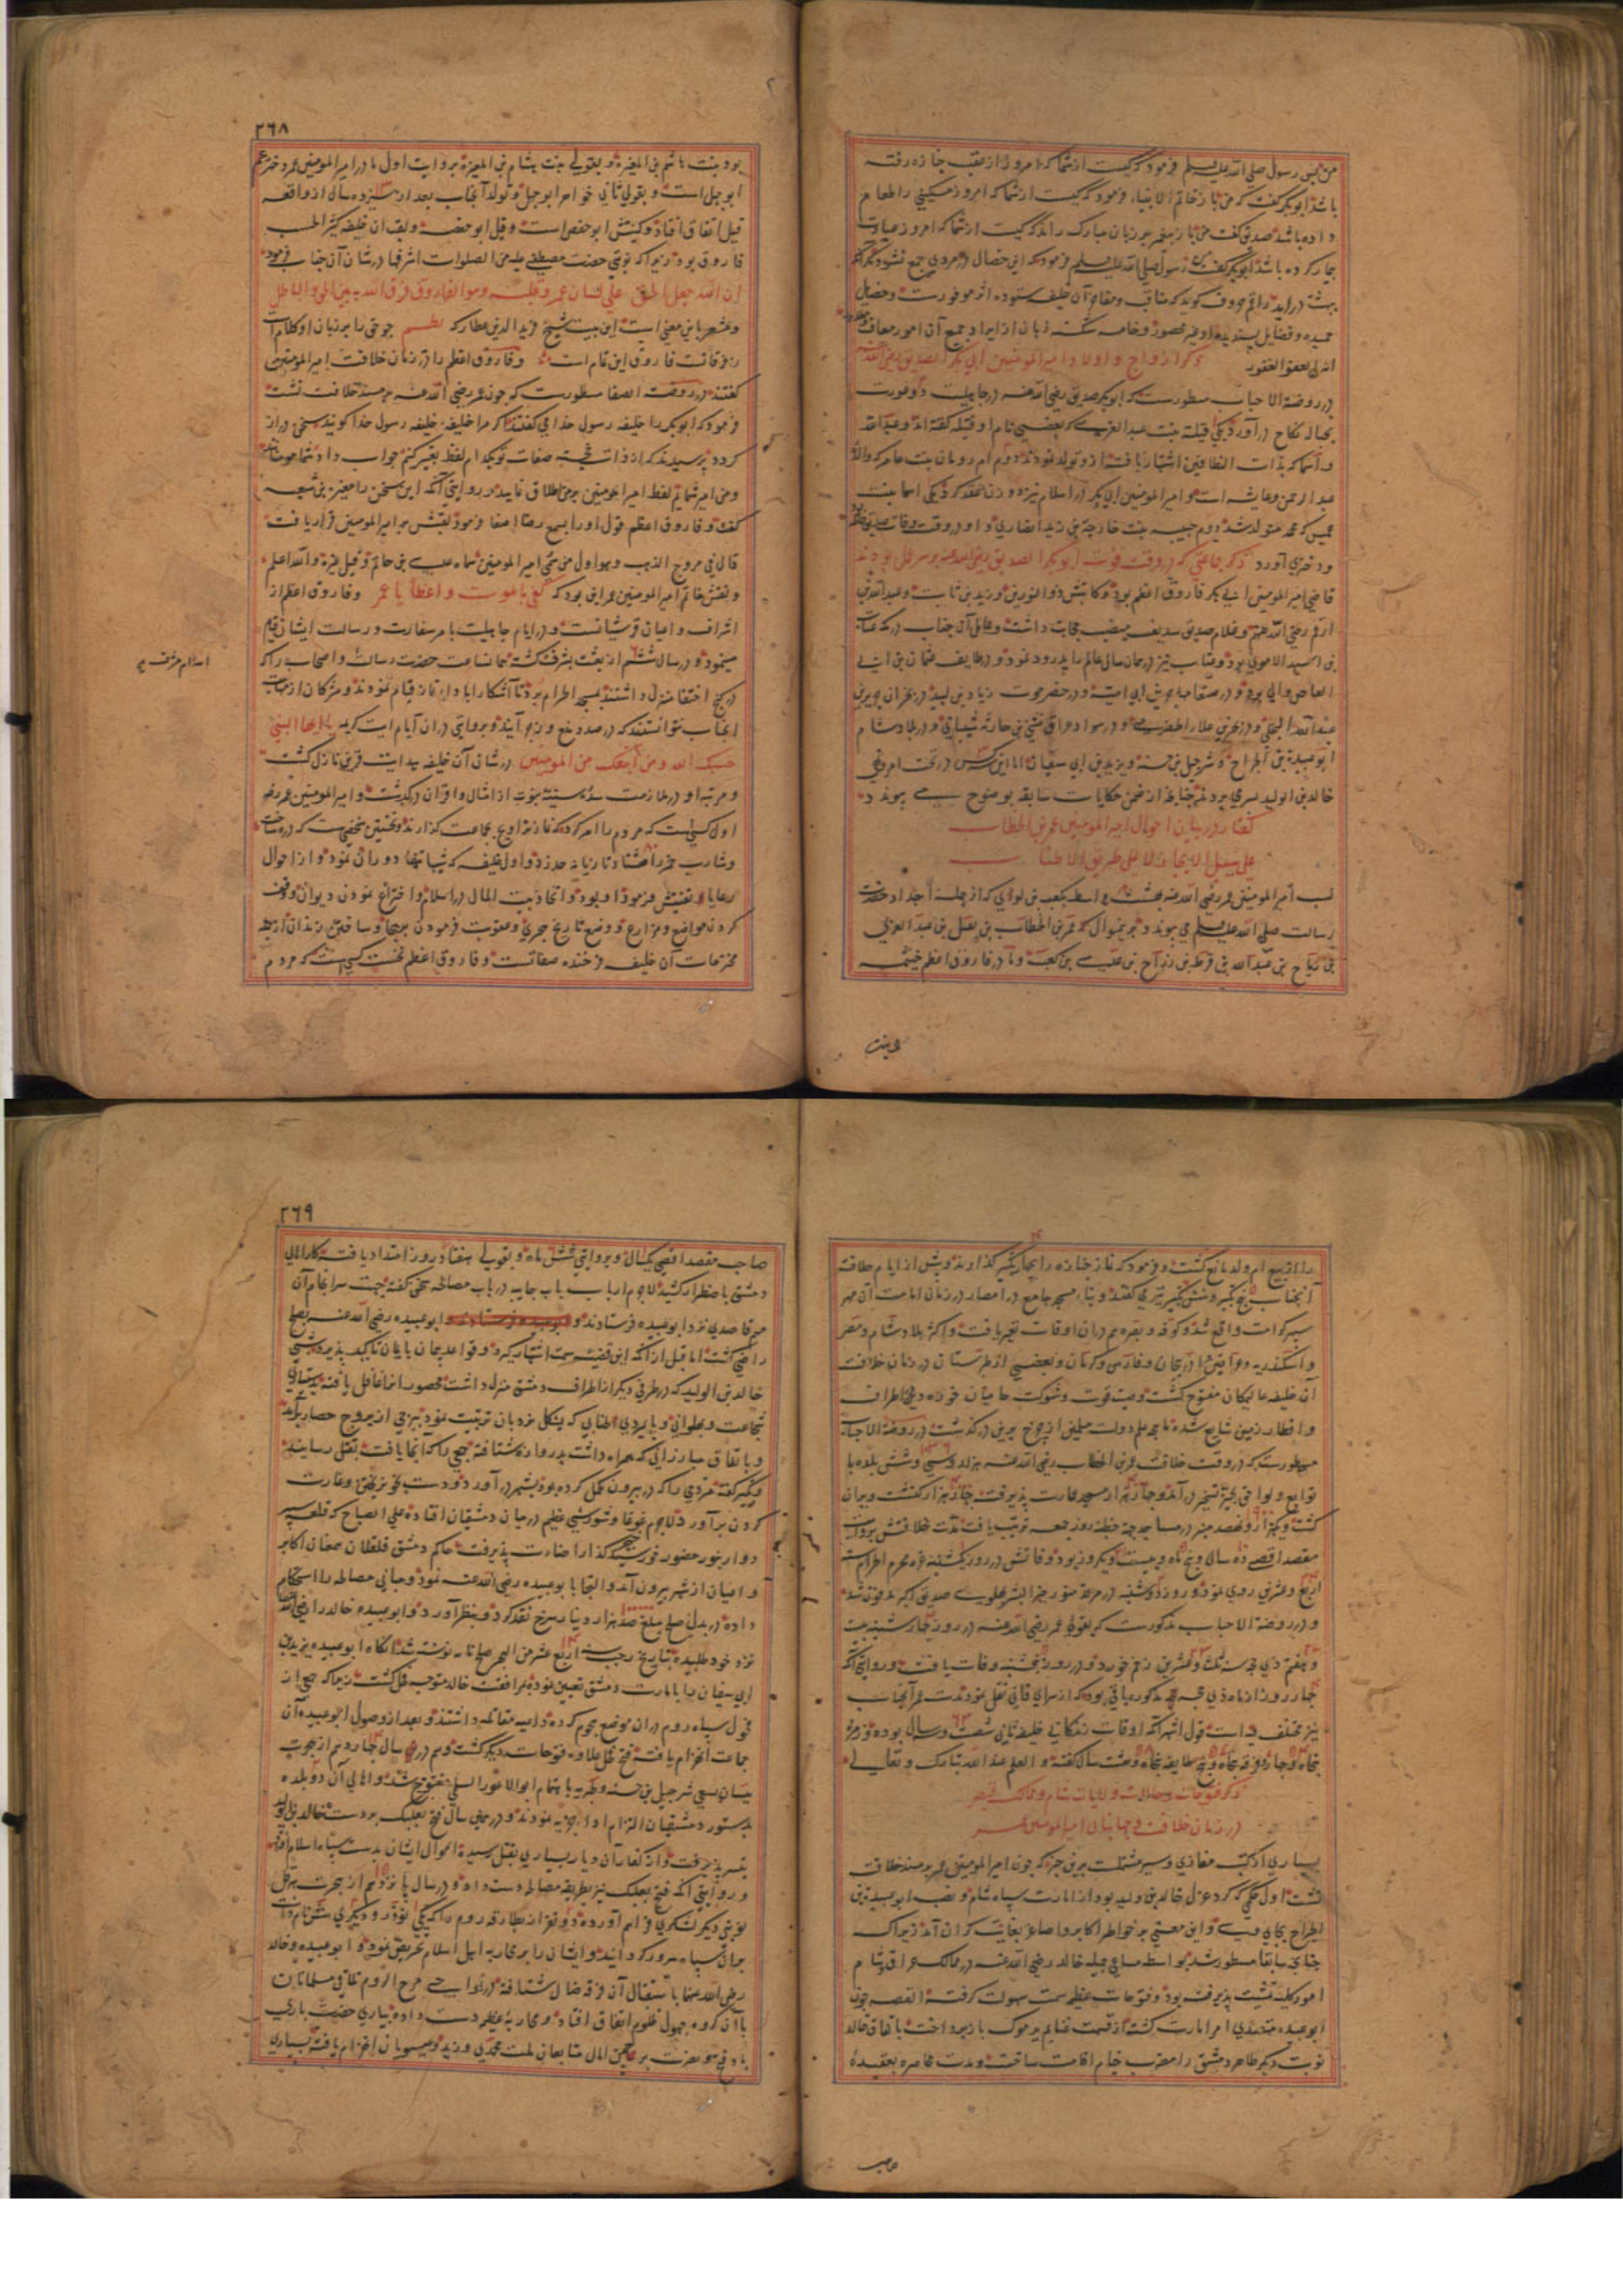 من پس رسول صلی الله علیه وسلم فرمود که کیست از شما که امروز از عقب جنازه رفته
باشد ابوبکر گفت که من باز خاتم الانبیاء فرمود که کیست از شما که امروز مسکینی را طعام
داده باشد صدیق گفت من باز پیغمبر بر زبان مبارک راند که کیست از شما که امروز عیادت
بیمار کرده باشد ابوبکر گفت من رسول صلی الله علیه وسلم فرمود که این خصال در مردی جمع نشود مگر آنکه
بهشت در آید راقم حروف گوید که مناقب و مفاخر آن خلیفه ستوده اثر موفورست و خصایل
حمیده و فضایل پسندیده او غیر محصور و خامه شکسته زبان از ایراد جمیع آن امور معاف و معذور
انه لهو العفو الغفور ذکر ازواج و اولاد امیر المومنین ابی بکر الصدیق رضی الله عنه
در روضة الاحباب مسطورست که ابوبکر صدیق رضی الله عنه در جاهلیت دو عورت
بحباله نکاح در آورد یکی قیله بنت عبد العزی که بعضی نام او قتیله گفته اند و عبد الله
و اسما که بذات النطاقین اشتهار یافت ازو تولد نمودند دوم ام رومان بنت عامر که والده
عبد الرحمن و عایشه است و امیر المومنین ابی بکر در اسلام نیز دو زن عقد کرد یکی اسما بنت
عمیس که محمد ازو متولد شد دوم حبیبه بنت خارجة بن زید انصاری و او در وقت وفات صدیق حامله بود
و دختری آورد ذکر جماعتی که در وقت فوت ابوبکر الصدیق رضی الله عنه بر سر عمل بودند
قاضی امیر المومنین ابی بکر فاروق اعظم بود و کاتبش ذو النورین و زید بن ثابت و عبد الله بن
ارقم رضی الله عنهم و غلام صدیق سدیف بمنصب حجابت داشت و عامل آن جناب در مکه عتاب
بن اسید الاموی بود و عتاب نیز در همان سال عالم را بدرود نمود و در طایف عثمان بن ابی
العاص والی بود و در صنعا مهاجر بن ابی امیه و در حضرموت زیاد بن لبید و در بحران جریر بن
عبد الله البجلی و در بحرین علاء الحضرمی و در سواد عراق مثنی بن حارثه شیبانی و در بلاد شام
ابو عبیدة بن الجراح و شرحبیل بن حسنه و یزید بن ابی سفیان اما این سه کس در تحت امر و نهی
خالد بن الولید بسری بردند چنانچه از ضمن حکایات سابقه بوضوح می پیوندد
گفتار در بیان احوال امیر المومنین عمر بن الخطاب
علی سبیل الایجاز لا علی طریق الاطناب
نسب امیر المومنین عمر رضی الله عنه بهشت واسطه بکعب بن لوای که از جمله اجداد حضرت
رسالت صلی الله علیه وسلم می پیوندد برینموال که عمر بن الخطاب بن نفیل بن عبد العزی
بن ریاح بن عبد الله بن قرط بن رزاح بن عدی بن کعب و مادر فاروق اعظم خیثمه
بنت
۲۶۸
بود بنت هاشم بن المغیره و بقولی بنت هشام بن المغیره بروایت اول مادر امیر المومنین عمر دختر عم
ابوجهل است و بقول ثانی خواهر ابوجهل و تولد آنجناب بعد از سیزده سال از واقعه
فیل اتفاق افتاد و کنیتش ابو حفص است و قیل ابو حفصه و لقب ان خلیفه کثیر الحسب
فاروق بود زیرا که نوبتی حضرت مصطفی علیه من الصلوات اشرفها در شان آن جناب فرمود
ان الله جعل الحق علی لسان عمر و قلبه و هو الفاروق فرق الله به بین الحق و الباطل
و مشعر باین معنی است این بیت شیخ فرید الدین عطار که نظم چو حق را بر زبان او کلام است
ز فرقانت فاروق این تمام است و فاروق اعظم را در زمان خلافت امیر المومنین می
گفتند در روضة الصفا مسطورست که چون عمر رضی الله عنه بر مسند خلافت نشست
فرمود که ابوبکر را خلیفه رسول خدا می گفتند اگر مرا خلیفه خلیفه رسول خدا گویند سخن دراز
گردد پرسیدند که از ذات خجسته صفات تو بکدام لفظ تعبیر کنیم جواب داد شما مومنانید
و من امیر شمایم لفظ امیر المومنین بر من اطلاق نمایید و روایتی آنکه این سخن را مغیره بن شعبه
گفت و فاروق اعظم قول او را بسمع رضا اصغا فرمود لقبش بر امیر المومنین قرار یافت
قال فی مروج الذهب و هو اول من سمی امیر المومنین سماه عدی بن حاتم و قیل غیره والله اعلم
و نقش خاتم امیر المومنین عمر این بود که کفی بالموت واعظا یا عمر و فاروق اعظم از
اشراف و اعیان قریش است و در ایام جاهلیت بامر سفارت و رسالت ایشان قیام
مینمود و در سال ششم از بعثت بشرف گشت همانساعت حضرت رسالت و اصحاب را که
در کنج اختفا منزل داشتند بمسجد الحرام برد تا آشکارا بادای نماز قیام نمودند و مشرکان از مهابت
آنجناب نتوانستند که در صدد منع و زجر آیند و بروایتی در ان آیام ایت کریمه یا ایها النبی
حسبک الله و من اتبعک من المومنین در شان آن خلیفه هدایت قرین نازل گشت
و مرتبه او در ملازمت سده سنیه نبوت از امثال و اقران در گذشت و امیر المومنین عمر رضه
اول کسیست که مردم را امر کرد که نماز تراویح بجماعت گذارند و نخستین شخصیست که دره ساخت
و شارب خمر را هشتاد تازیانه حد زد و اول خلیفه که شبها تنها دوران نمود و از احوال
رعایا تفتیش فرمود او بود و اتخاذ بیت المال در اسلام و اختراع نمودن دیوان و وقف
کردن مواضع و مزارع و وضع تاریخ هجری و عقوبت فرمودن بهجا و ساختن زندان از جمله
مخترعات آن خلیفه فرخنده صفاتست و فاروق اعظم نخست کسیست که مردم
اسلام مشرف
را از بیع ام ولد مانع گشت و فرمود که نماز جنازه را بچهار تکبیر گذارند و پیش از ایام خلافت
آنجناب پنج تکبیر و شش تکبیر نیز می گفتند و بناء مسجد جامع در امصار در زمان امامت آن مهر
سپهر کرامت واقع شد و کوفه و بصره هم در ان اوقات تعمیر یافت و اکثر بلاد شام و مصر
و اسکندریه و عراقین و آذربیجان و فارس و کرمان و بعضی از طبرستان در زمان خلافت
آن خلیفه عالیمکان مفتوح گشت وصیت قوت و شوکت حامیان حوزه دین باطراف
و اقطار زمین شایع شده ماهچه علم دولت مسلمین از چرخ برین در گذشت در روضة الاحباب
مسطورست که در وقت خلافت عمر بن الخطاب رضی الله عنه هزار و سی و شش بلده با
توابع و لواحق بحیز تسخیر در آمد و چهار هزار مسجد عمارت پذیرفت چهار هزار کنشت ویران
گشت و یکهزار و نهصد منبر در مساجد جهة خطبه روز جمعه ترتیب یافت مدت خلافتش بروایت
مقصد اقصی ده سال و پنج ماه و بیست و یک روز بود وفاتش در روز یکشنبه غره محرم الحرام سنه
اربع و عشرین روی نمود و روز دوشنبه در روضه منوره خیر البشر پهلوی صدیق اکبر مدفون شد
و در روضة الاحباب مذکورست که بقولی عمر رضی الله عنه در روز چهارشنبه بیست
و هفتم ذی حجه سنه ثلث و عشرین زخم خورد و در روز پنجشنبه وفات یافت و روایتی آنکه
چهار روز از ماه ذی حجه مذکور باقی بود که از سرای فانی نقل نمود مدت عمر آنجناب
نیز مختلف فیه است قول اشهر آنکه اوقات زندگانی خلیفه ثانی شصت و سه سال بوده و زمرهٔ
پنجاه و چهار و فرقه پنجاه و پنج و طایفه پنجاه و هشت سال گفته و العلم عند الله تبارک و تعالی
ذکر فتوحات و حالات ولایات شام و ممالک قیصر
در زمان خلافت و جهانبانی امیر المومنین عمر
بسیاری از کتب مغازی و سیر مشتملست برین خبر که چون امیر المومنین عمر بر مسند خلافت
نشست اول حکمی که کرد عزل خالد بن ولید بود از امارت سپاه شام و نصب ابو عبیدة بن
الجراح بجای وی و این معنی بر خواطر اکابر و اصاغر بغایت گران آمد زیرا که
چنانچه سابقا مسطور شد بواسطه مساعی جمیله خالد رضی الله عنه در ممالک عراق و شام
امور کلیه تمشیت پذیرفته بود و فتوحات عظیمه سمت سهولت گرفته القصه چون
ابو عبیده متصدی امر امارت گشته از قسمت غنایم یرموک باز پرداخت باتفاق خالد
نوبت دیگر ظاهر دمشق را مضرب خیام اقامت ساخت و مدت محاصره بعقیدهٔ
صاحب
۲۶۹
صاحب مقصد اقصی یکسال و بروایتی شش ماه و بقولی هفتاد روز امتداد یافته کار اهالی
دمشق باضطرار کشید لاجرم ارباب باب جابیه در باب مصالحه سخن گفته جهت سرانجام آن
مهم قاصدی نزد ابو عبیده فرستادند و ابو عبیده رضی الله عنه بصلح
راضی گشت اما قبل از آنکه این قضیه سمت اشتهار گیرد و قواعد پیمان بایمان تاکید پذیرد شبی
خالد بن الولید که در طرف دیگر از اطراف دمشق منزل داشت محصور انرا غافل یافته بدستیاری
شجاعت و پهلوانی و پایمردی اطنابی که بشکل نردبان ترتیب نموده بود ببرجی از بروج حصار برآمد
و باتفاق مبارزانی که همراه داشت بدروازه شتافته جمعی را که آنجا یافت بقتل رسانید
و تکبیر گفته مردمی را که در بیرون مکمل کرده بود بشهر در آورد و دست بخونریختن و غارت
کردن برآورد لاجرم غوغا و شورشی عظیم در میان دمشقیان افتاده علی الصباح که قلعه سپهر
دوار بنور حضور خورشید خنجر گذار اضاءت پذیرفت حاکم دمشق قلقلان سمعان اکابر
و اعیان از شهر بیرون آمد و التجا بابو عبیده رضی الله عنه نمود و مبانی مصالحه را استحکام
داده در بدل صلح مبلغ صد هزار دینار سرخ نقد کرد و بنظر آورد و ابو عبیده خالد را رضی الله عنه
نزد خود طلبیده بتاریخ رجب سنه اربع عشر من الهجره صلح نامه نوشته شد آنگاه ابو عبیده یزید بن
ابی سفیان را بامارت دمشق تعیین نموده بمرافقت خالد متوجه فحل گشت زیرا که جمعی از
فحول سپاه روم در ان موضع هجوم کرده داعیه مقاتله داشتند و بعد از وصول ابو عبیده آن
جماعت انهزام یافته فتح فحل علاوه فتوحات دیگر گشت و هم در سال چهاردهم از هجرت
بیسان بسعی شرحبیل بن حسنه و طبریه باهتمام ابو الاعور السلمی مفتوح شد و اهالی آن دو بلده
بدستور دمشقیان التزام اداء جزیه نمودند و در همین سال فتح بعلبک بر دست خالد بن ولید
تیسیر پذیرفت و از کفار آن دیار بسیاری بقتل رسیده اموال ایشان بدست سپاه اسلام افتاد
و روایتی آنکه فتح بعلبک نیز بطریقه مصالحه دست داد و در سال پانزدهم از هجرت هرقل
نوبتی دیگر لشکری فراهم آورده دو نفر از بطارقه روم را که یکی توذرو دیگری شنس نام داشت
بران سپاه سرور گردانید و ایشان را بر محاربه اهل اسلام تحریض نمود و ابو عبیده و خالد
رضی الله عنهما باستقبال آن فرقه ضال شتافته در نواحی مرج الروم تلاقی مسلمانان
باآن گروه جهول ظلوم اتفاق افتاد و محاربهٔ عظیم دست داده بیاری حضرت باری
باد فتح و نصرت بر پرچم اعلام متابعان ملت محمدی وزید و عیسویان انهزام یافته بسیاری